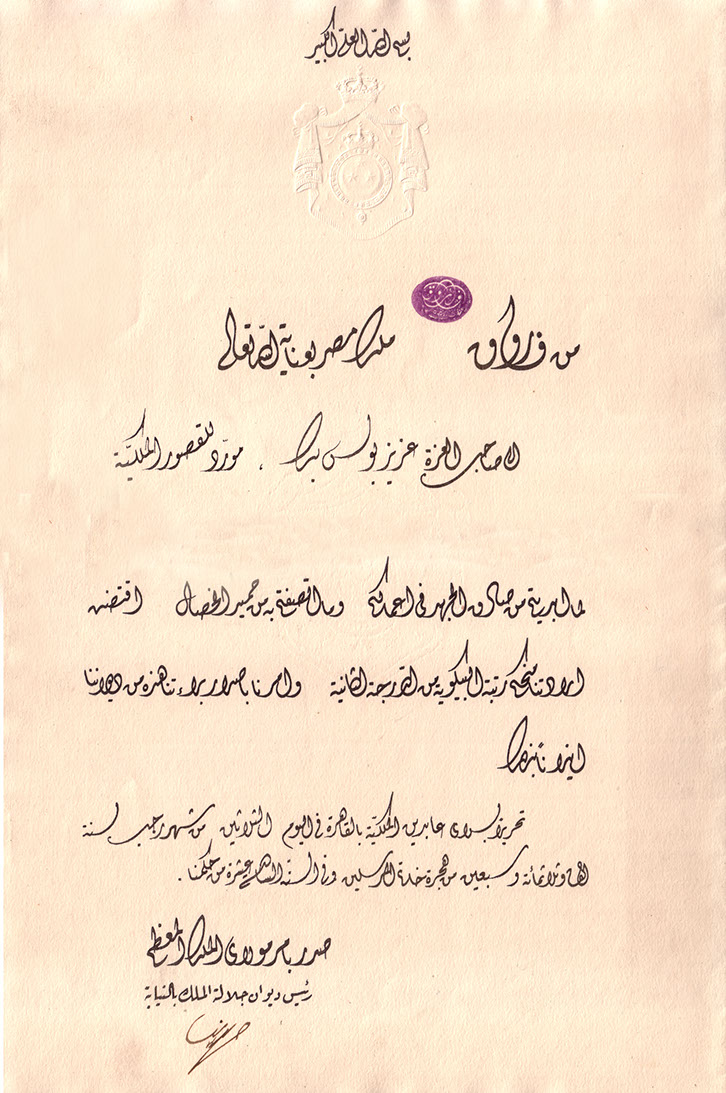 بسم الله العلى الكبير
فاروق
من فاروق ملك مصر بعناية الله تعالى
الى صاحب العزة عزيز بولس بك ، مورّد للقصور الملكيّة
لما ابديته من صادق الجهد فى اعمالكم وما اتصفتم به من حميد الخصال اقتضت
ارادتنا منحكم رتبة البيكوية من الدّرجة الثانية وامرنا باصدار براءتنا هذه من ديواننا
ايذانًا بذلك
تحريرًا بسراى عابدين الملكيّة بالقاهرة فى اليوم الثلاثين من شهر رجب لسنة
الف وثلاثمائة وسبعين من هجرة خاتم المرسلين وفى السنة الخامسة عشرة من حكمنا .
صدر بامر مولاى الملك المعظم
رئيس ديوان جلالة الملك بالنيابة